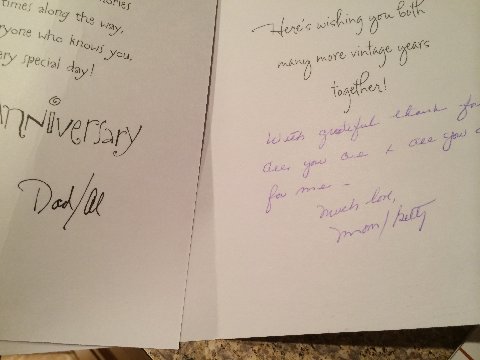 times along the way,
everyone who knows you,
very special day!
Anniversary
Dad/Al
Here's wishing you both
many more vintage years
together!
With grateful thanks for
all you are & all you
for me -
Much love,
Mom/Betty